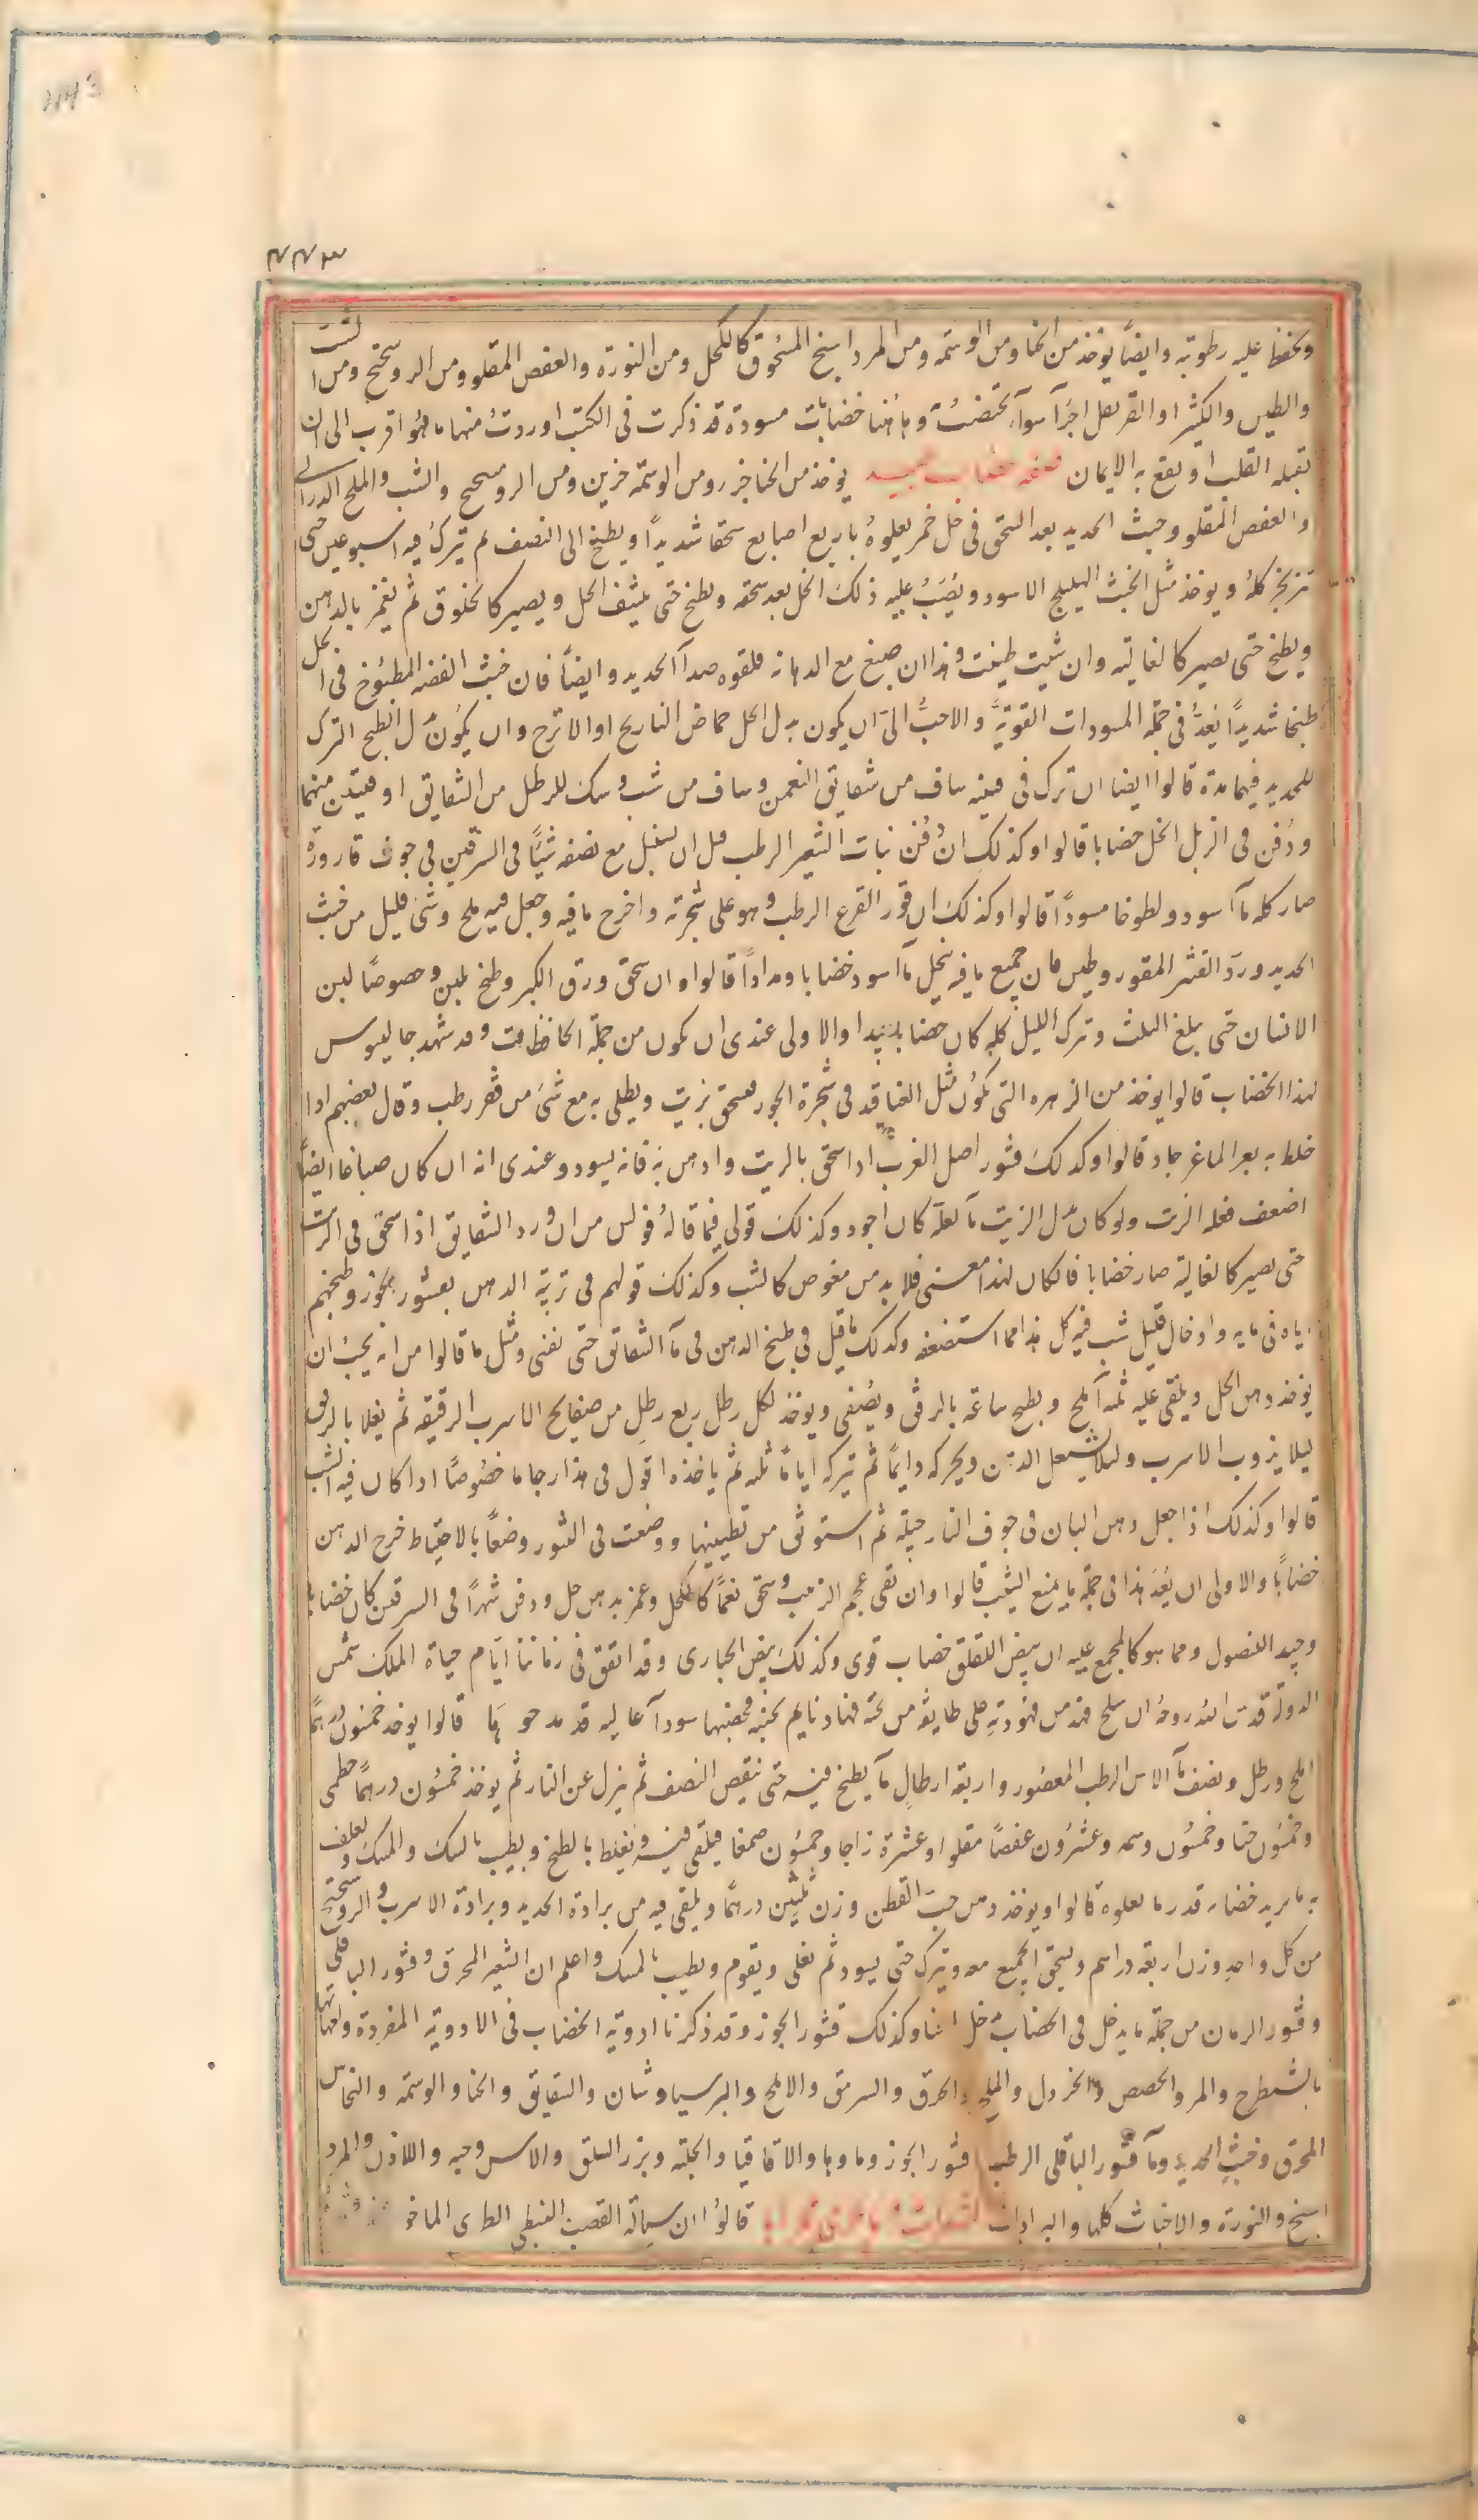 ٢٢٣
ويحفظ عليه رطوبته وايضاً يوخذ من الحنا ومن الوسمه ومن المرداسنج المسحوق كالكحل ومن النورة والعفص المقلو ومن الروسختج ومن الشب
والطين والكثيرا والقرنفل اجزآ سوآ يختضب وهاهنا خضابات مسودة قد ذكرت فى الكتب اوردت منها ما هو اقرب الى ان
يقبله القلب او يقع به الايمان صفه خضاب جيد يوخذ من الحنا جزر ومن الوسمه جزين ومن الروسختج والشب والملح الدرانى
والعفص المقلو وخبث الحديد بعد السحق فى خل خمر يعلوه باربع اصابع سحقا شديداً ويطبخ الى النصف ثم يترك فيه اسبوعين حتى
يتزنجر كله ويوخذ مثل الخبث الهليلج الاسود ويُصَبُّ عليه ذلك الخل بعد سحقه ويطبخ حتى ينشف الخل ويصير كالخلوق ثم يغمر بالدهن
ويطبخ حتى يصير كالغاليه وان شيت طيبت وهذا ان صبغ مع الدهانه فلقوه صدآ الحديد وايضاً فان خبث الفضه المطبوخ فى الخل
طبخا شديداً يُعَدُّ فى جملة المسودات القوية والاحبُّ الىّ ان يكون بدل الخل حماض النارنج او الاترج وان يكون بدل الطبخ الترك
للحديد فيها مدة قالوا ايضا ان ترك فى قنينه ساف من شقايق النعمن وساف من شب ومسك للرطل من الشقايق اوقيتين منهما
ودُفن فى الزبل انحل خضابا قالوا وكذلك ان دُفن نبات الشعير الرطب قبل ان يسنبل مع نصفه شبّاً فى السرقين فى جوف قارورة
صار كله مآ اسود ولطوخا مسوداً قالوا وكذلك ان قور القرع الرطب وهو على شجرته واخرج ما فيه وجعل فيه ملح وشئ قليل من خبث
الحديد وردّ القشر المقور وطين فان جميع ما فيه ينحل مآ اسود خضابا ومداداً قالوا وان سحق ورق الكبر وطبخ بلبن وخصوصًا لبن
الانسان حتى يبلغ الثلث وترك الليل كله كان خضابا جيدا والاولى عندى ان يكون من جملة الحافظات وقد شهد جالينوس
لهذا الخضاب قالوا يوخذ من الزهره التى تكون مثل العناقيد فى شجرة الجوز فسحق بزيت ويطلى به مع شئ من قفر رطب وقال بعضهم اذا
خلط به بعر الماعز جاد قالوا وكذلك قشور اصل الغرب اذا سحق بالزيت وادمن به فانه يسود وعندى انه ان كان صباغا ايضاً
اضعف فعله الزيت ولو كان بدل الزيت مآ لعله كان اجود وكذلك قولى فيما قاله فولس من ان ورد الشقايق اذا سحق فى الزيت
حتى يصير كالغالية صار خضابا فان كان لهذا معنى فلا بد من مغوص كالشب وكذلك قولهم فى تربية الدهن بقشور الجوز وطبخهم
اياه فى مايه وادخال قليل شب فيه كل هذا مما استضعفه وكذلك ما قيل فى طبخ الدهن فى مآ الشقايق حتى يفنى ومثل ما قالوا من انه يجب ان
يوخذ دهن الخل ويلقى عليه ثمنه آملج ويطبخ ساعة بالرفق ويُصفى ويوخذ لكل رطل ربع رطل من صفايح الاسرب الرقيقه ثم يغلا بالرفق
ليلا يذوب الاسرب وليلا يشتعل الدهن ويحركه دايماً ثم يتركه اياماً ثلثه ثم ياخذه اقول فى هذا رجا ما خصوصًا اذا كان فيه الشب
قالوا وكذلك اذا جعل دهن البان فى جوف النارجيلة ثم استوثق من تطيينها ووضعت فى التنور وضعاً بالاحتياط خرج الدهن
خضاباً والاولى ان يُعَد هذا فى جملة ما يمنع الشيب قالوا وان نقى عجم الزبيب وسحق نعماً كالكحل وغمر بدهن خل ودفن شهراً فى السرقين كان خضابا
وجيد النصول ومما هو كالمجمع عليه ان بيض اللقلق خضاب قوى وكذلك بيض الحبارى وقد اتفق فى زماننا ايّام حياة الملك شمس
الدولة قدس الله روحه ان سلح فهد من فهودته على طايفة من فهاد نايم بجنبه فخضبها سودآ قالوا يوخذ خمسون درهماً
املج ورطل ونصف مآ الاس الرطب المعصور واربعة ارطالِ مآ يطبخ فيه حتى ينقص النصف ثم ينزل عن النار ثم يوخذ خمسون درهمًا خطمى
وخمسون حنا وخمسون وسمه وعشرون عفصاً مقلوا وعشرة زاجا وخمسون صمغا فيلقى فيه ويُغلظ بالطبخ ويطيب بالسك والمسك ويغلف
به ما يريد خضابه قدر ما يعلوه قالوا ويوخذ دهن حبّ القطن وزن ثلثين درهمًا ويلقى فيه من برادة الحديد وبرادة الاسرب والروسختج
من كل واحدٍ وزن اربعة دراهم ويسحق الجميع معه ويترك حتى يسود ثم يغلى ويقوم ويطيب بالمسك واعلم ان الشعير المحرق وقشور الباقلى
وقشور الرمان من جملة ما يدخل فى الخضاب وكذلك قشور الجوز وقد ذكرنا ادوية الخضاب فى الادوية المفردة
بالشيطرج والمر والحصص والخردل والملح المحرق والسرمق والاملج والبرسياوشان والشقايق والحنا والوسمه والنحاس
المحرق وخبث الحديد ومآ قشور الباقلى الرطب قشور الجوز وماوها والاقاقيا والحلبة وبزر السلق والاس وحبه واللاذن والمرد
اسنج والنورة والاخباث كلها والبرادات قالوا ان سيالة القصب النبطى الطرى الماخو